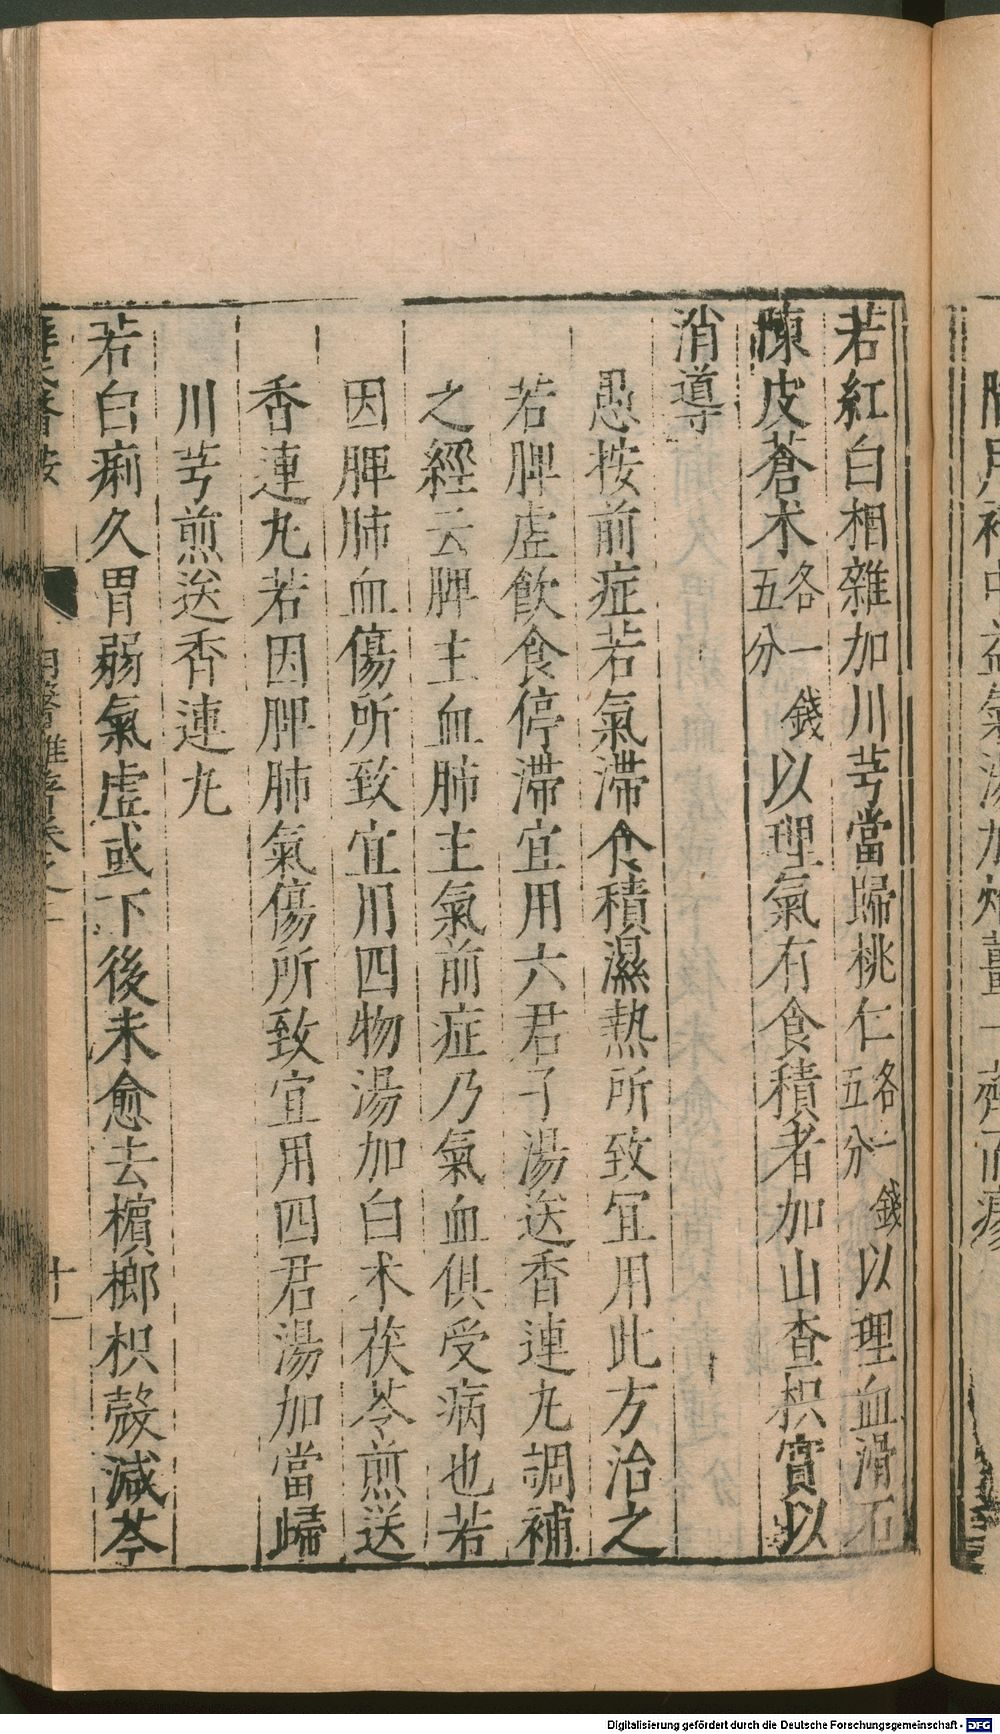 若紅白相雜加川芎當歸桃仁各一錢五分以理血滑石
陳皮蒼术各一錢五分以理氣有食積者加山查枳實以
消導
愚按前症若氣滯食積濕熱所致宜用此方治之
若脾虛飲食停滯宜用六君子湯送香連丸調補
之經云脾主血肺主氣前症乃氣血俱受病也若
因脾肺血傷所致宜用四物湯加白术茯苓煎送
香連丸若因脾肺氣傷所致宜用四君湯加當歸
川芎煎送香連丸
若白痢久胃弱氣虛或下後未愈去檳榔枳殼減芩
明醫雜著卷之二
廿一
Digitalisierung gefördert durch die Deutsche Forschungsgemeinschaft - DFG